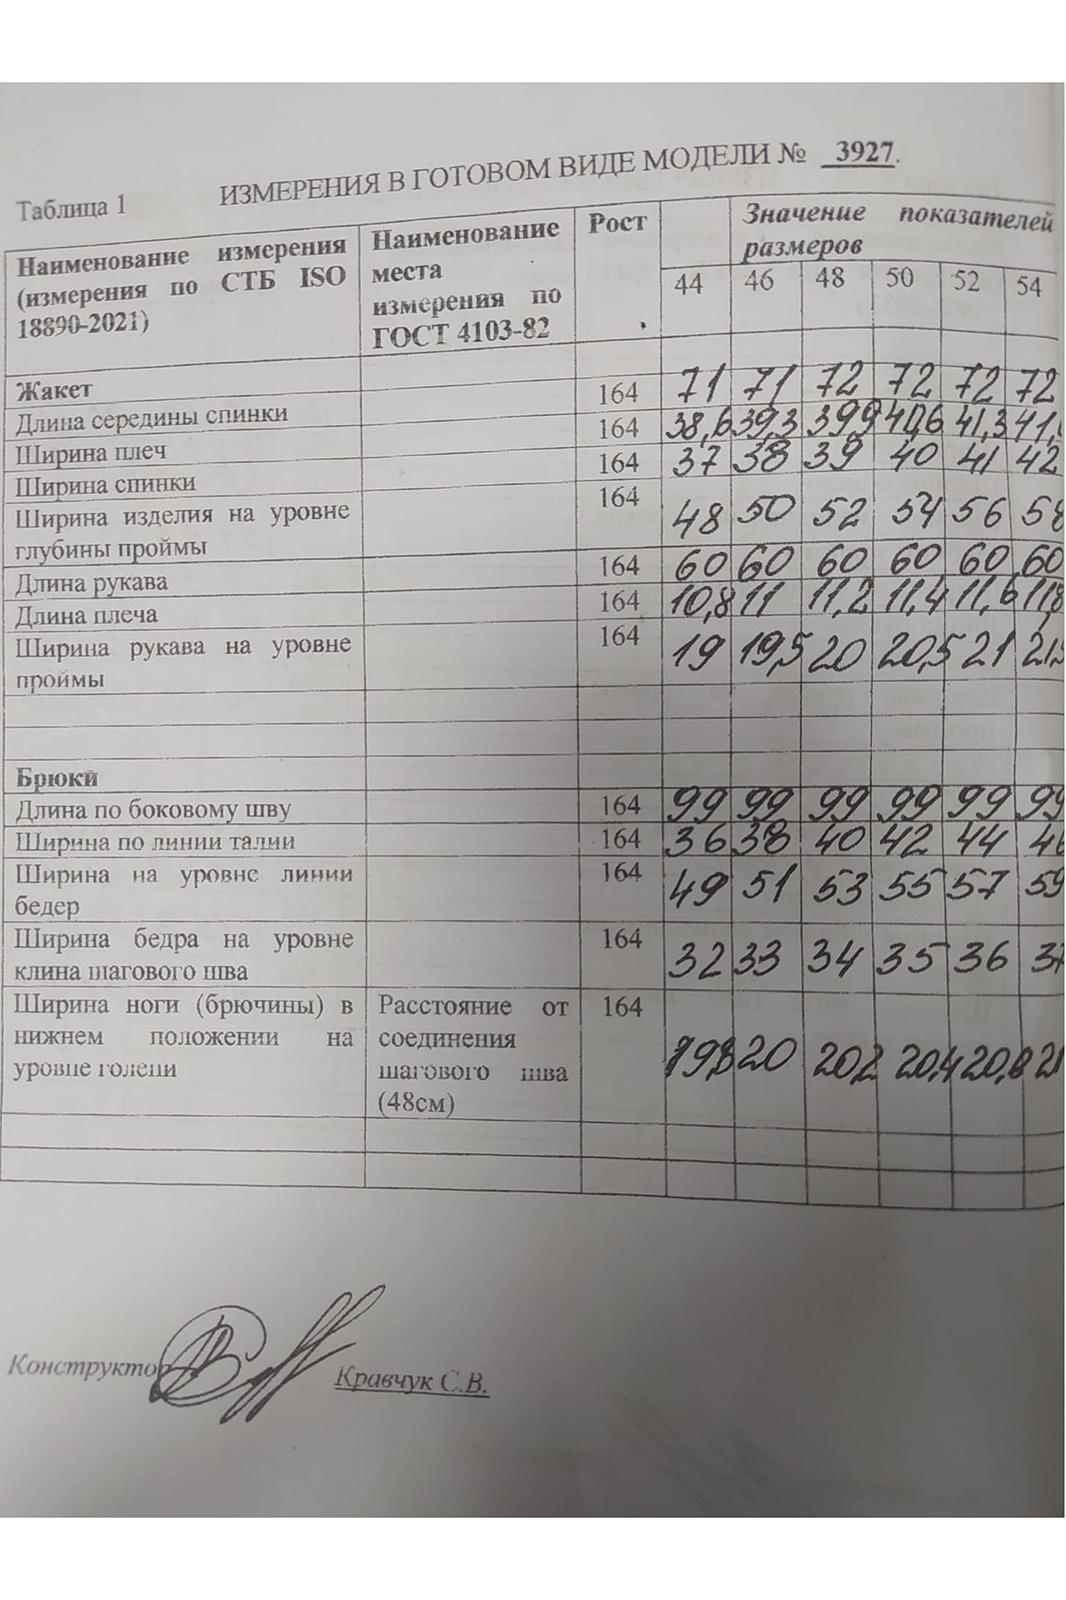 Таблица 1
ИЗМЕРЕНИЯ В ГОТОВОМ ВИДЕ МОДЕЛИ № 3927.
Наименование измерения (измерения по СТБ ISO 18890-2021) Наименование места измерения по ГОСТ 4103-82 Рост Значение показателей размеров
44 46 48 50 52 54
Жакет
Длина середины спинки 164 71 71 72 72 72 72
Ширина плеч 164 38,6 39,3 39,9 40,6 41,3 41,
Ширина спинки 164 37 38 39 40 41 42
Ширина изделия на уровне
глубины проймы 164 48 50 52 54 56 58
Длина рукава 164 60 60 60 60 60 60
Длина плеча 164 10,8 11 11,2 11,4 11,6 11,8
Ширина рукава на уровне
проймы 164 19 19,5 20 20,5 21 21,5
Брюки
Длина по боковому шву 164 99 99 99 99 99 99
Ширина по линии талии 164 36 38 40 42 44 46
Ширина на уровне линии
бедер 164 49 51 53 55 57 59
Ширина бедра на уровне
клина шагового шва 164 32 33 34 35 36 37
Ширина ноги (брючины) в Расстояние от 164
нижнем положении на соединения
уровне голени шагового шва 19,8 20 20,2 20,4 20,8 21
(48см)
Конструктор
Кравчук С.В.